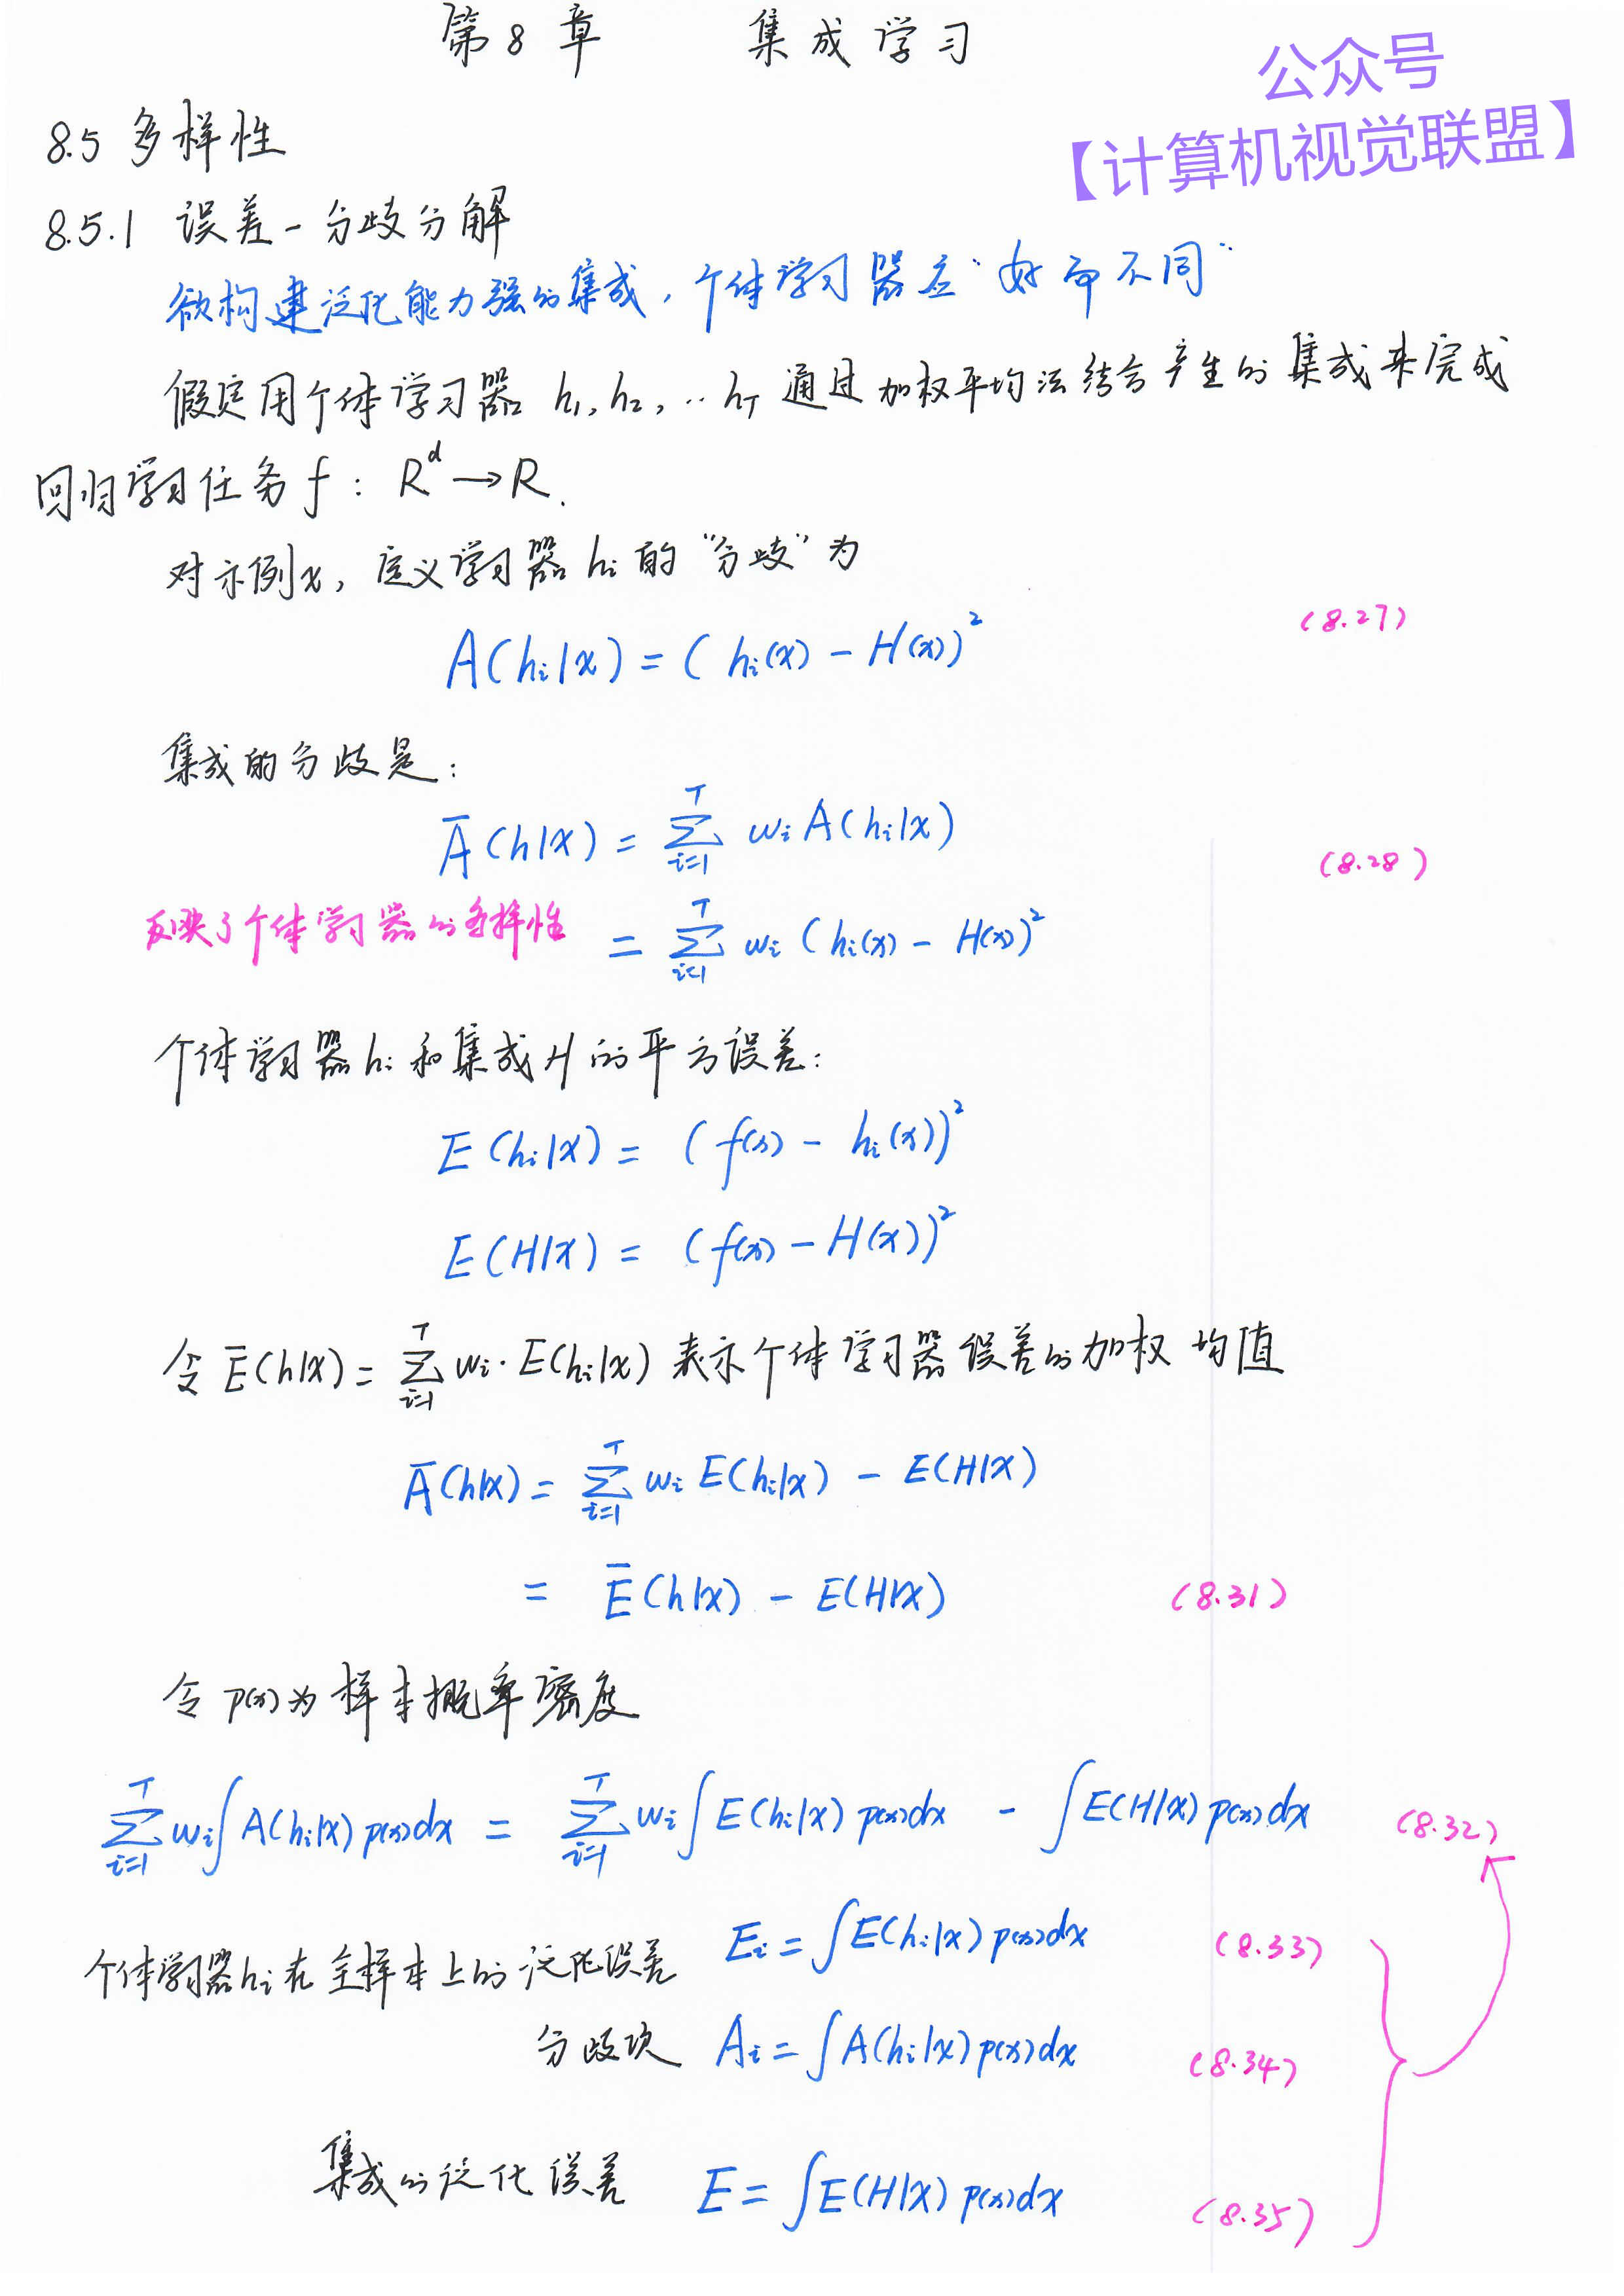 第8章 集成学习
公众号
【计算机视觉联盟】
8.5 多样性
8.5.1 误差-分歧分解
欲构建泛化能力强的集成，个体学习器应“好而不同”
假定用个体学习器 h₁, h₂, ‥ h_T 通过加权平均法结合产生的集成来完成
回归学习任务 f : R^d → R.
对示例x, 定义学习器 hᵢ 的 “分歧” 为
A(hᵢ|x) = (hᵢ(x) - H(x))² (8.27)
集成的分歧是:
Ā(h|x) = Σ_{i=1}^T wᵢ A(hᵢ|x) (8.28)
反映了个体学习器的多样性 = Σ_{i=1}^T wᵢ (hᵢ(x) - H(x))²
个体学习器 hᵢ 和集成 H 的平方误差:
E(hᵢ|x) = (f(x) - hᵢ(x))²
E(H|x) = (f(x) - H(x))²
令 Ē(h|x) = Σ_{i=1}^T wᵢ · E(hᵢ|x) 表示个体学习器误差的加权均值
Ā(h|x) = Σ_{i=1}^T wᵢ E(hᵢ|x) - E(H|x)
= Ē(h|x) - E(H|x) (8.31)
令 p(x) 为样本概率密度
Σ_{i=1}^T wᵢ ∫ A(hᵢ|x) p(x) dx = Σ_{i=1}^T wᵢ ∫ E(hᵢ|x) p(x) dx - ∫ E(H|x) p(x) dx (8.32)
个体学习器 hᵢ 在全样本上的泛化误差 Eᵢ = ∫ E(hᵢ|x) p(x) dx (8.33)
分歧项 Aᵢ = ∫ A(hᵢ|x) p(x) dx (8.34)
集成的泛化误差 E = ∫ E(H|x) p(x) dx (8.35)